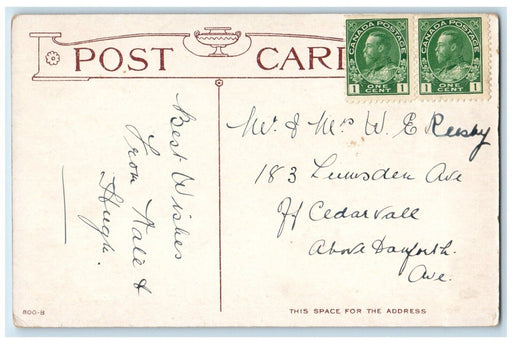 POST CARD
CANADA POSTAGE
1 ONE CENT 1
CANADA POSTAGE
1 ONE CENT 1
Best Wishes
from Kate &
Hugh.
Mr & Mrs W. E
183 Lumsden Ave
Cedarvale
Above Danforth.
Ave.
800-B
THIS SPACE FOR THE ADDRESS